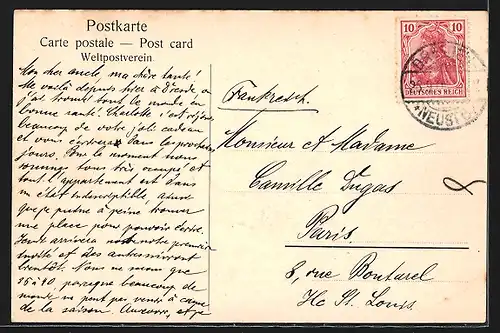 Postkarte
Carte postale — Post card
Weltpostverein
Mon cher oncle, ma chère tante!
Me voilà depuis hier à Dresde et
j'ai trouvé tout le monde en
bonne santé! Charlotte s'est réjouie
beaucoup de votre joli cadeau
et vous écrira dans les prochains
jours. Pour le moment nous
sommes tous très occupés et
tout l'appartement est dans
un état indescriptible, ainsi
que je puisse à peine trouver
une place pour pouvoir écrire.
Jeudi arrivera notre première
invitée et des autres suivront
bientôt. Nous ne sommes que
35 à 40, parceque beaucoup de
monde ne peut pas venir à cause
de la saison. Au revoir, et je
Frankreich.
Monsieur et Madame
Camille Dugas
Paris.
8, rue Boutarel
Ile St. Louis
10 10
DEUTSCHES REICH
NEUST